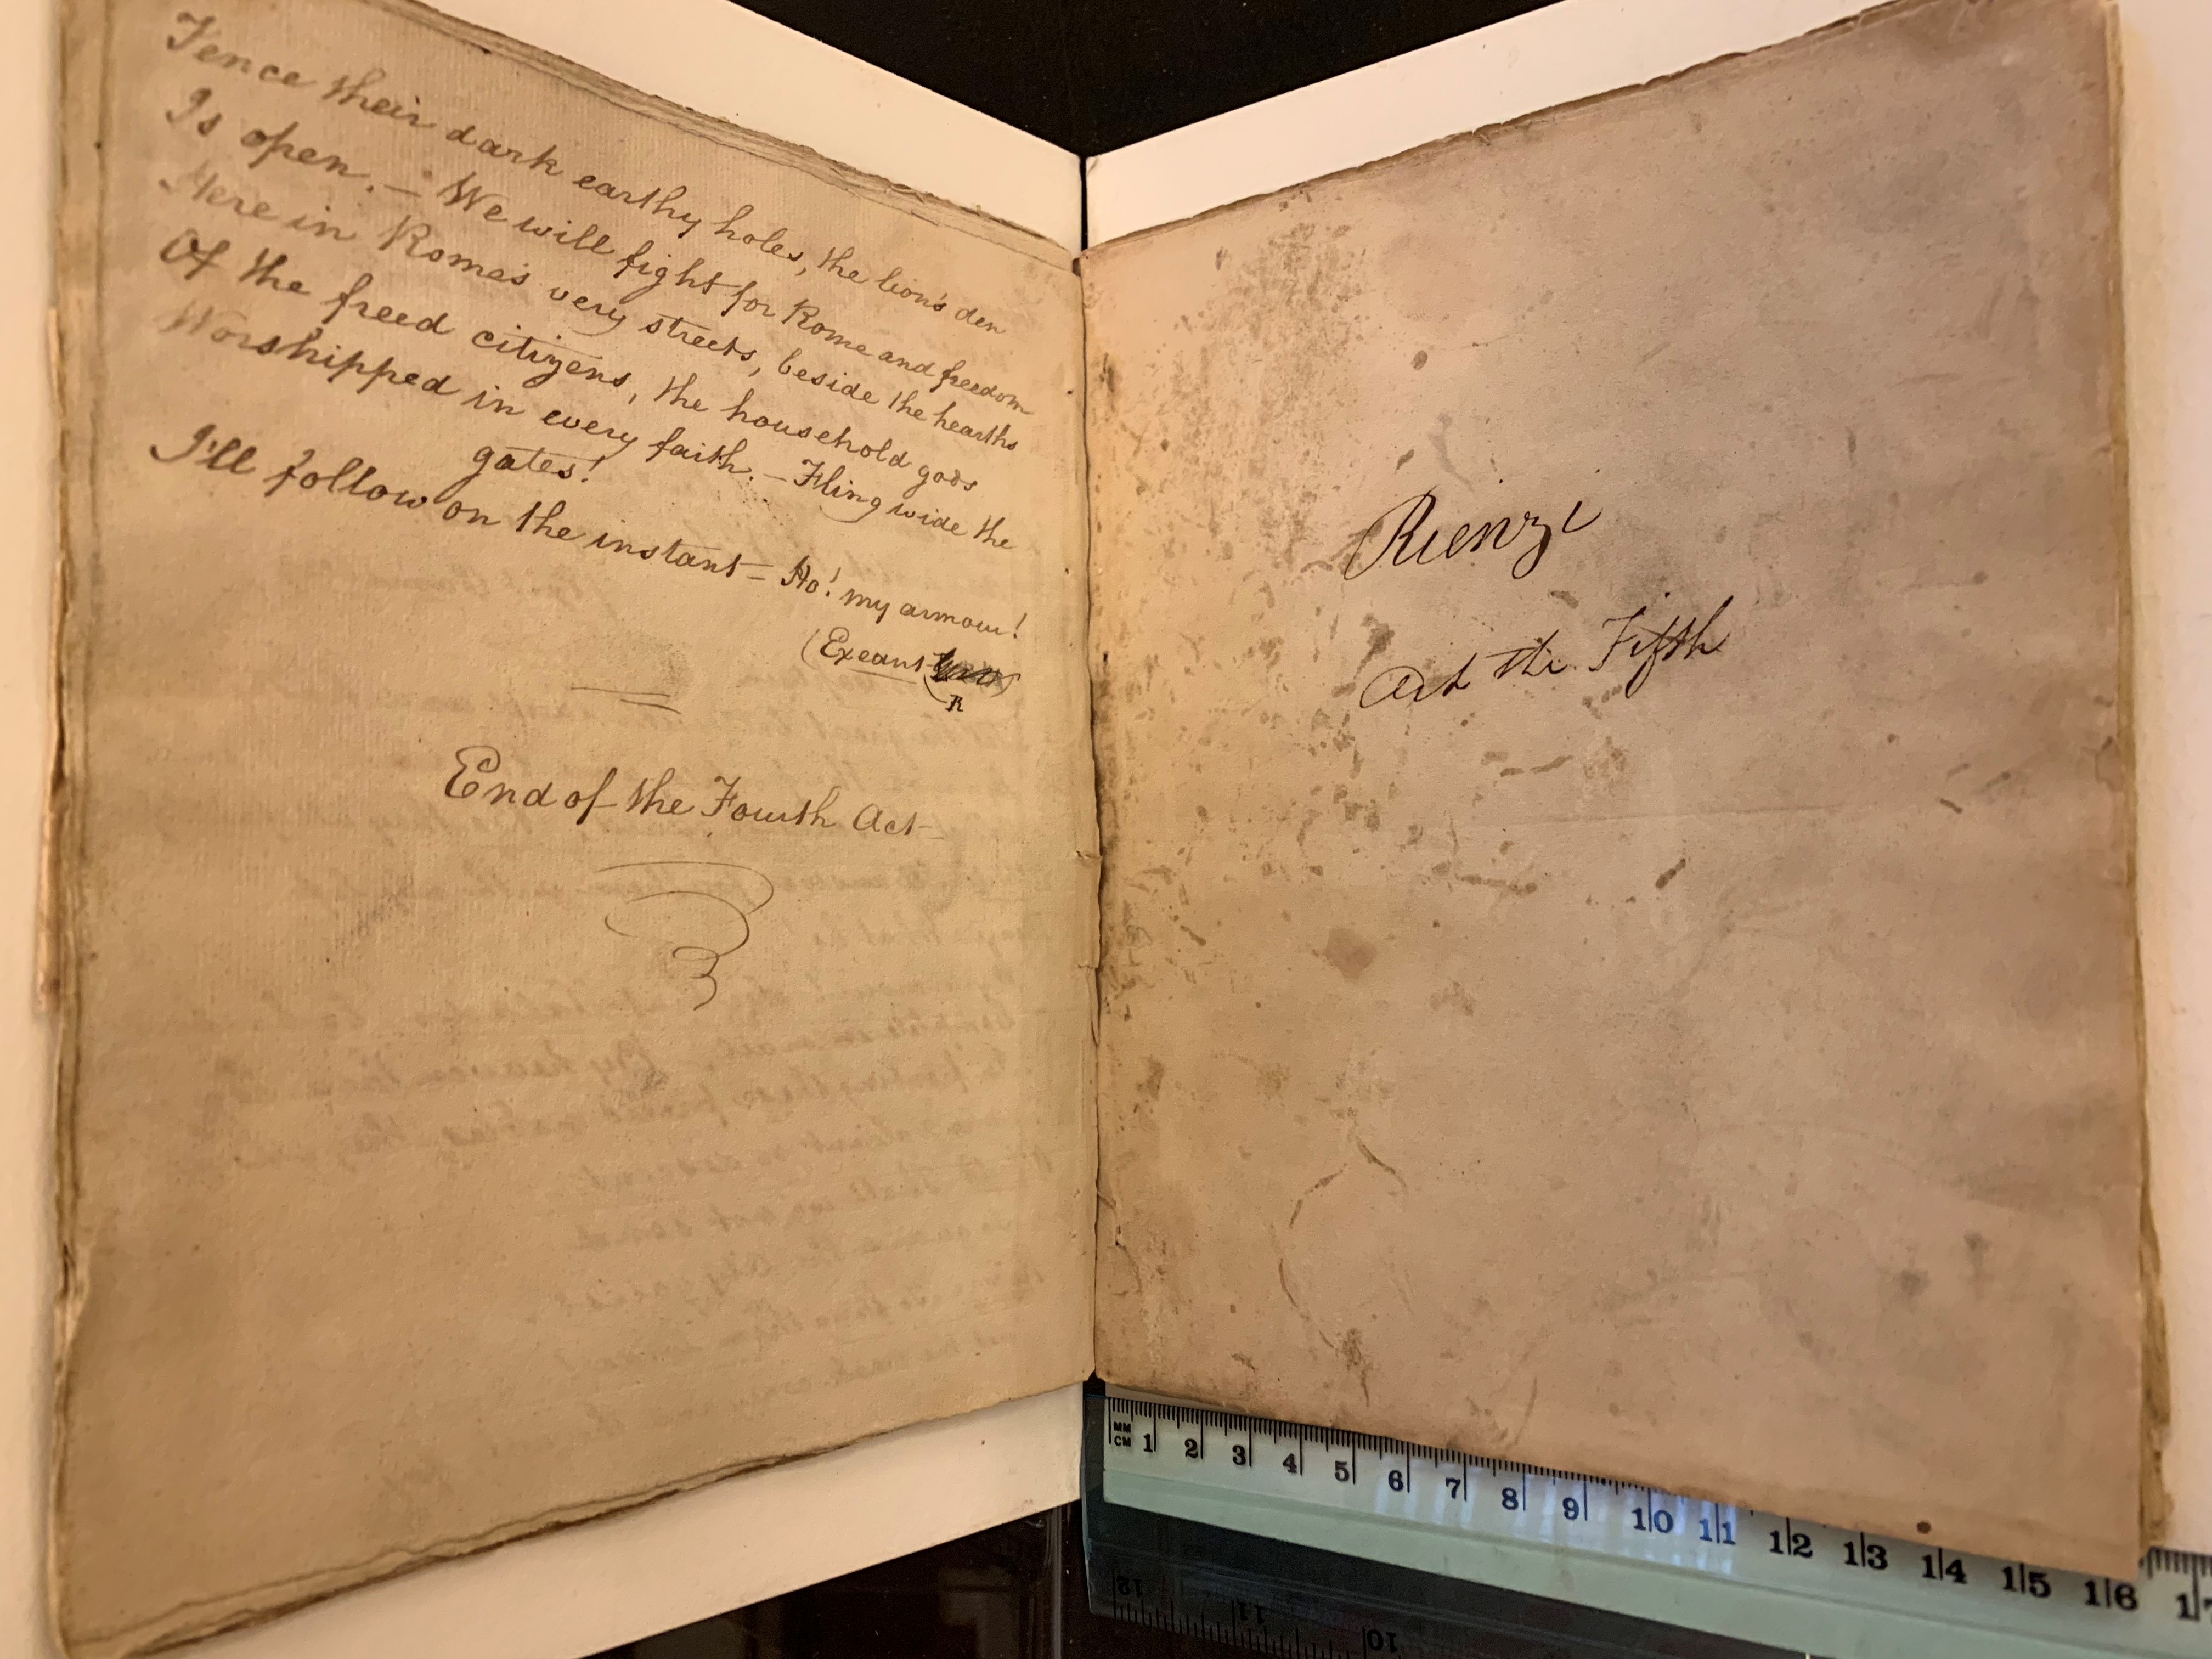 Fence their dark earthy holes, the lion's den
Is open. — We will fight for Rome and freedom
Here in Rome's very streets, beside the hearths
Of the freed citizens, the household gods
Worshipped in every faith. — Fling wide the
gates!
I'll follow on the instant — Ho! my armour!
(Exeunt
R
End of the Fourth Act
Rienzi
Act the Fifth
MM
CM 1 2 3 4 5 6 7 8 9 10 11 12 13 14 15 16 17
12 11 10